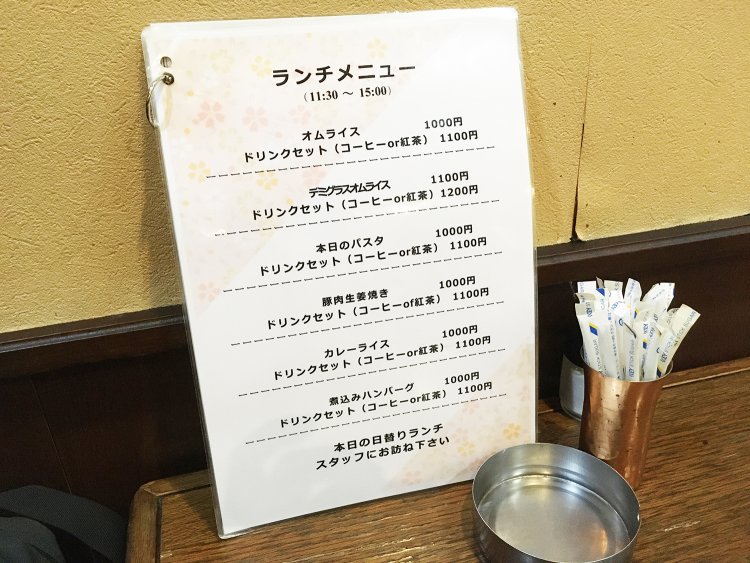 ランチメニュー
（11:30 ～ 15:00）
オムライス 1000円
ドリンクセット（コーヒーor紅茶） 1100円
デミグラスオムライス 1100円
ドリンクセット（コーヒーor紅茶） 1200円
本日のパスタ 1000円
ドリンクセット（コーヒーor紅茶） 1100円
豚肉生姜焼き 1000円
ドリンクセット（コーヒーof紅茶） 1100円
カレーライス 1000円
ドリンクセット（コーヒーor紅茶） 1100円
煮込みハンバーグ 1000円
ドリンクセット（コーヒーor紅茶） 1100円
本日の日替りランチ
スタッフにお訪ね下さい